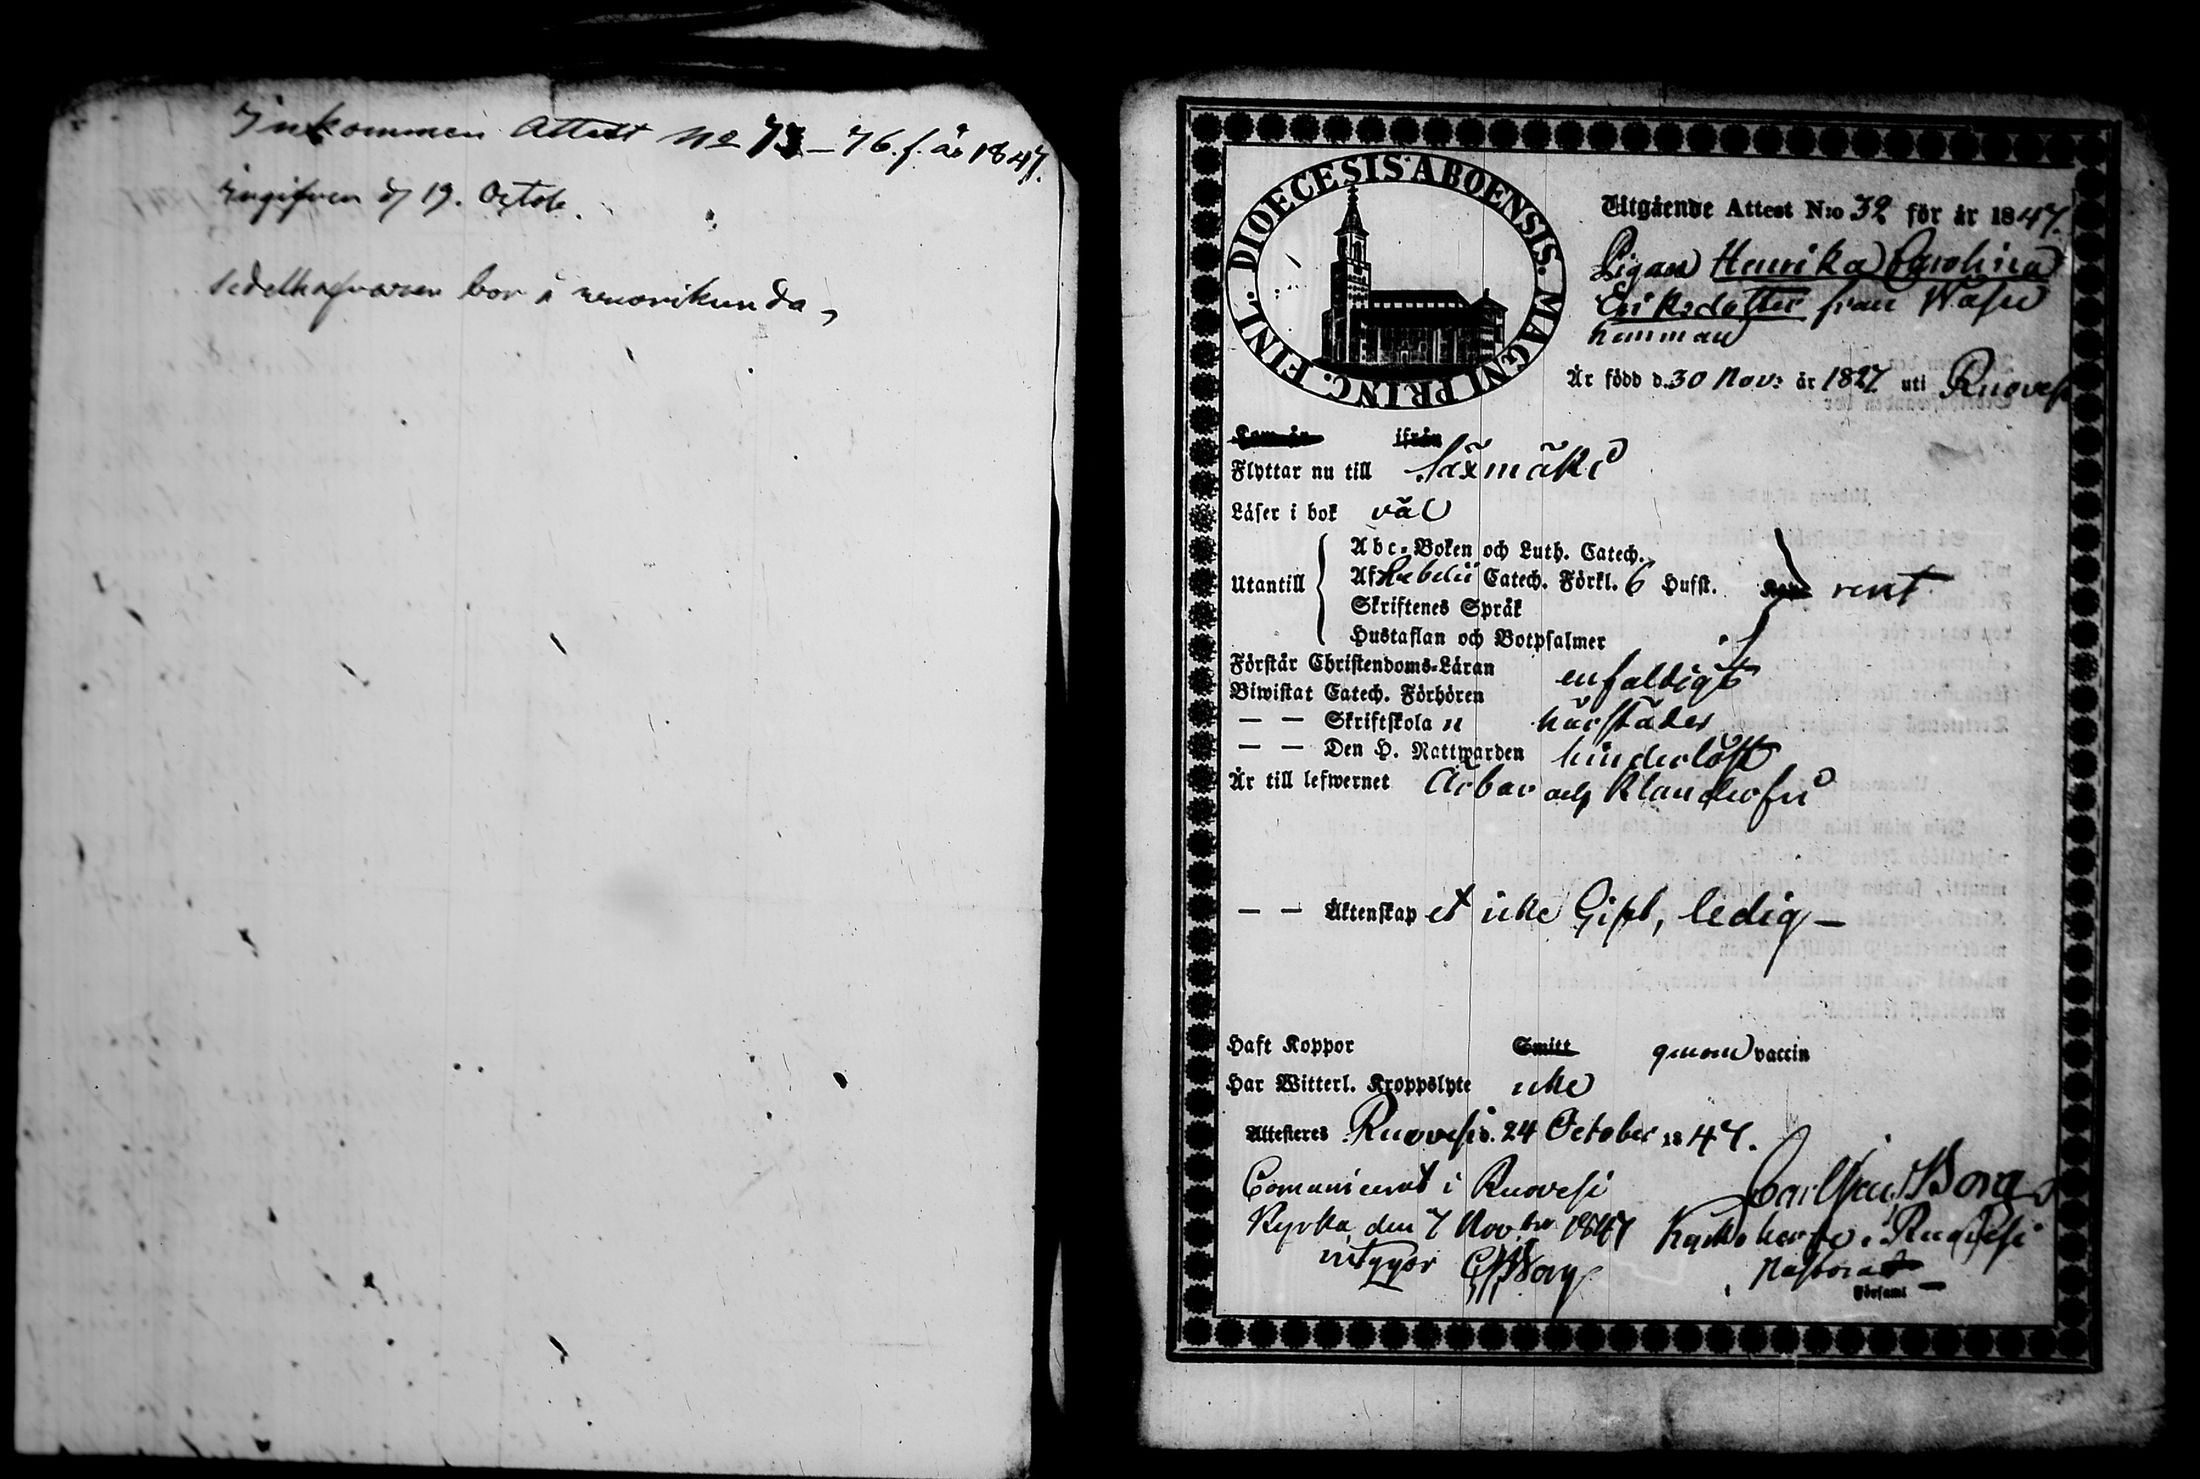 Inkommen Attest No 73–76. f. år 1847.
Ingifven d 19. Octob.
Sedelhafvaren bor i
DIOECESIS ABOENSIS. MAGNI PRINC. FINL.
Utgående Attest N:o 32 för år 1847.
Pigan Henrika Carolina
Eriksdotter från
hemman
Är född d. 30 Nov: år 1827 uti Ruovesi
Kom år ifrån
Flyttar nu till Säxmäki
Läser i bok väl
Utantill
Abc-Boken och Luth. Catech.
Af Catech. Förkl. 6 Hufst. rent
Skriftenes Språk
Hustaflan och Botpsalmer
Förstår Christendoms-Läran enfaldigt
Biwistat Catech. Förhören
— — Skriftskola n härstädes
— — Den H. Nattwarden hinderlöst
Är till lefwernet Ärbar och klanderfri
— — Äktenskap et icke Gift, ledig —
Haft Koppor Smitt genom vaccin
Har Witterl. Kroppslyte icke
Attesteres Ruovesi d. 24 October 1847.
Comunicerat i Ruovesi
Kyrka, den 7 Nov:br 1847
intygar Borg
Carl Borg
Kyrkoherde i Ruovesi
Pastorat
Församl